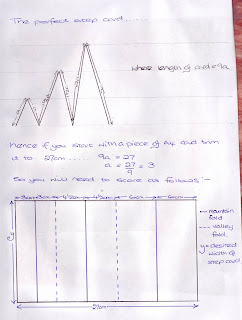 The perfect step card.....
where length of card = 9a
Hence if you start with a piece of A4 and trim
it to 27cm..... 9a = 27
a = 27/9 = 3
So you will need to score as follows:-
3cm 3cm 4½cm 4½cm 6cm 6cm
y
27cm
mountain
fold
valley
fold.
y = desired
width of
step card